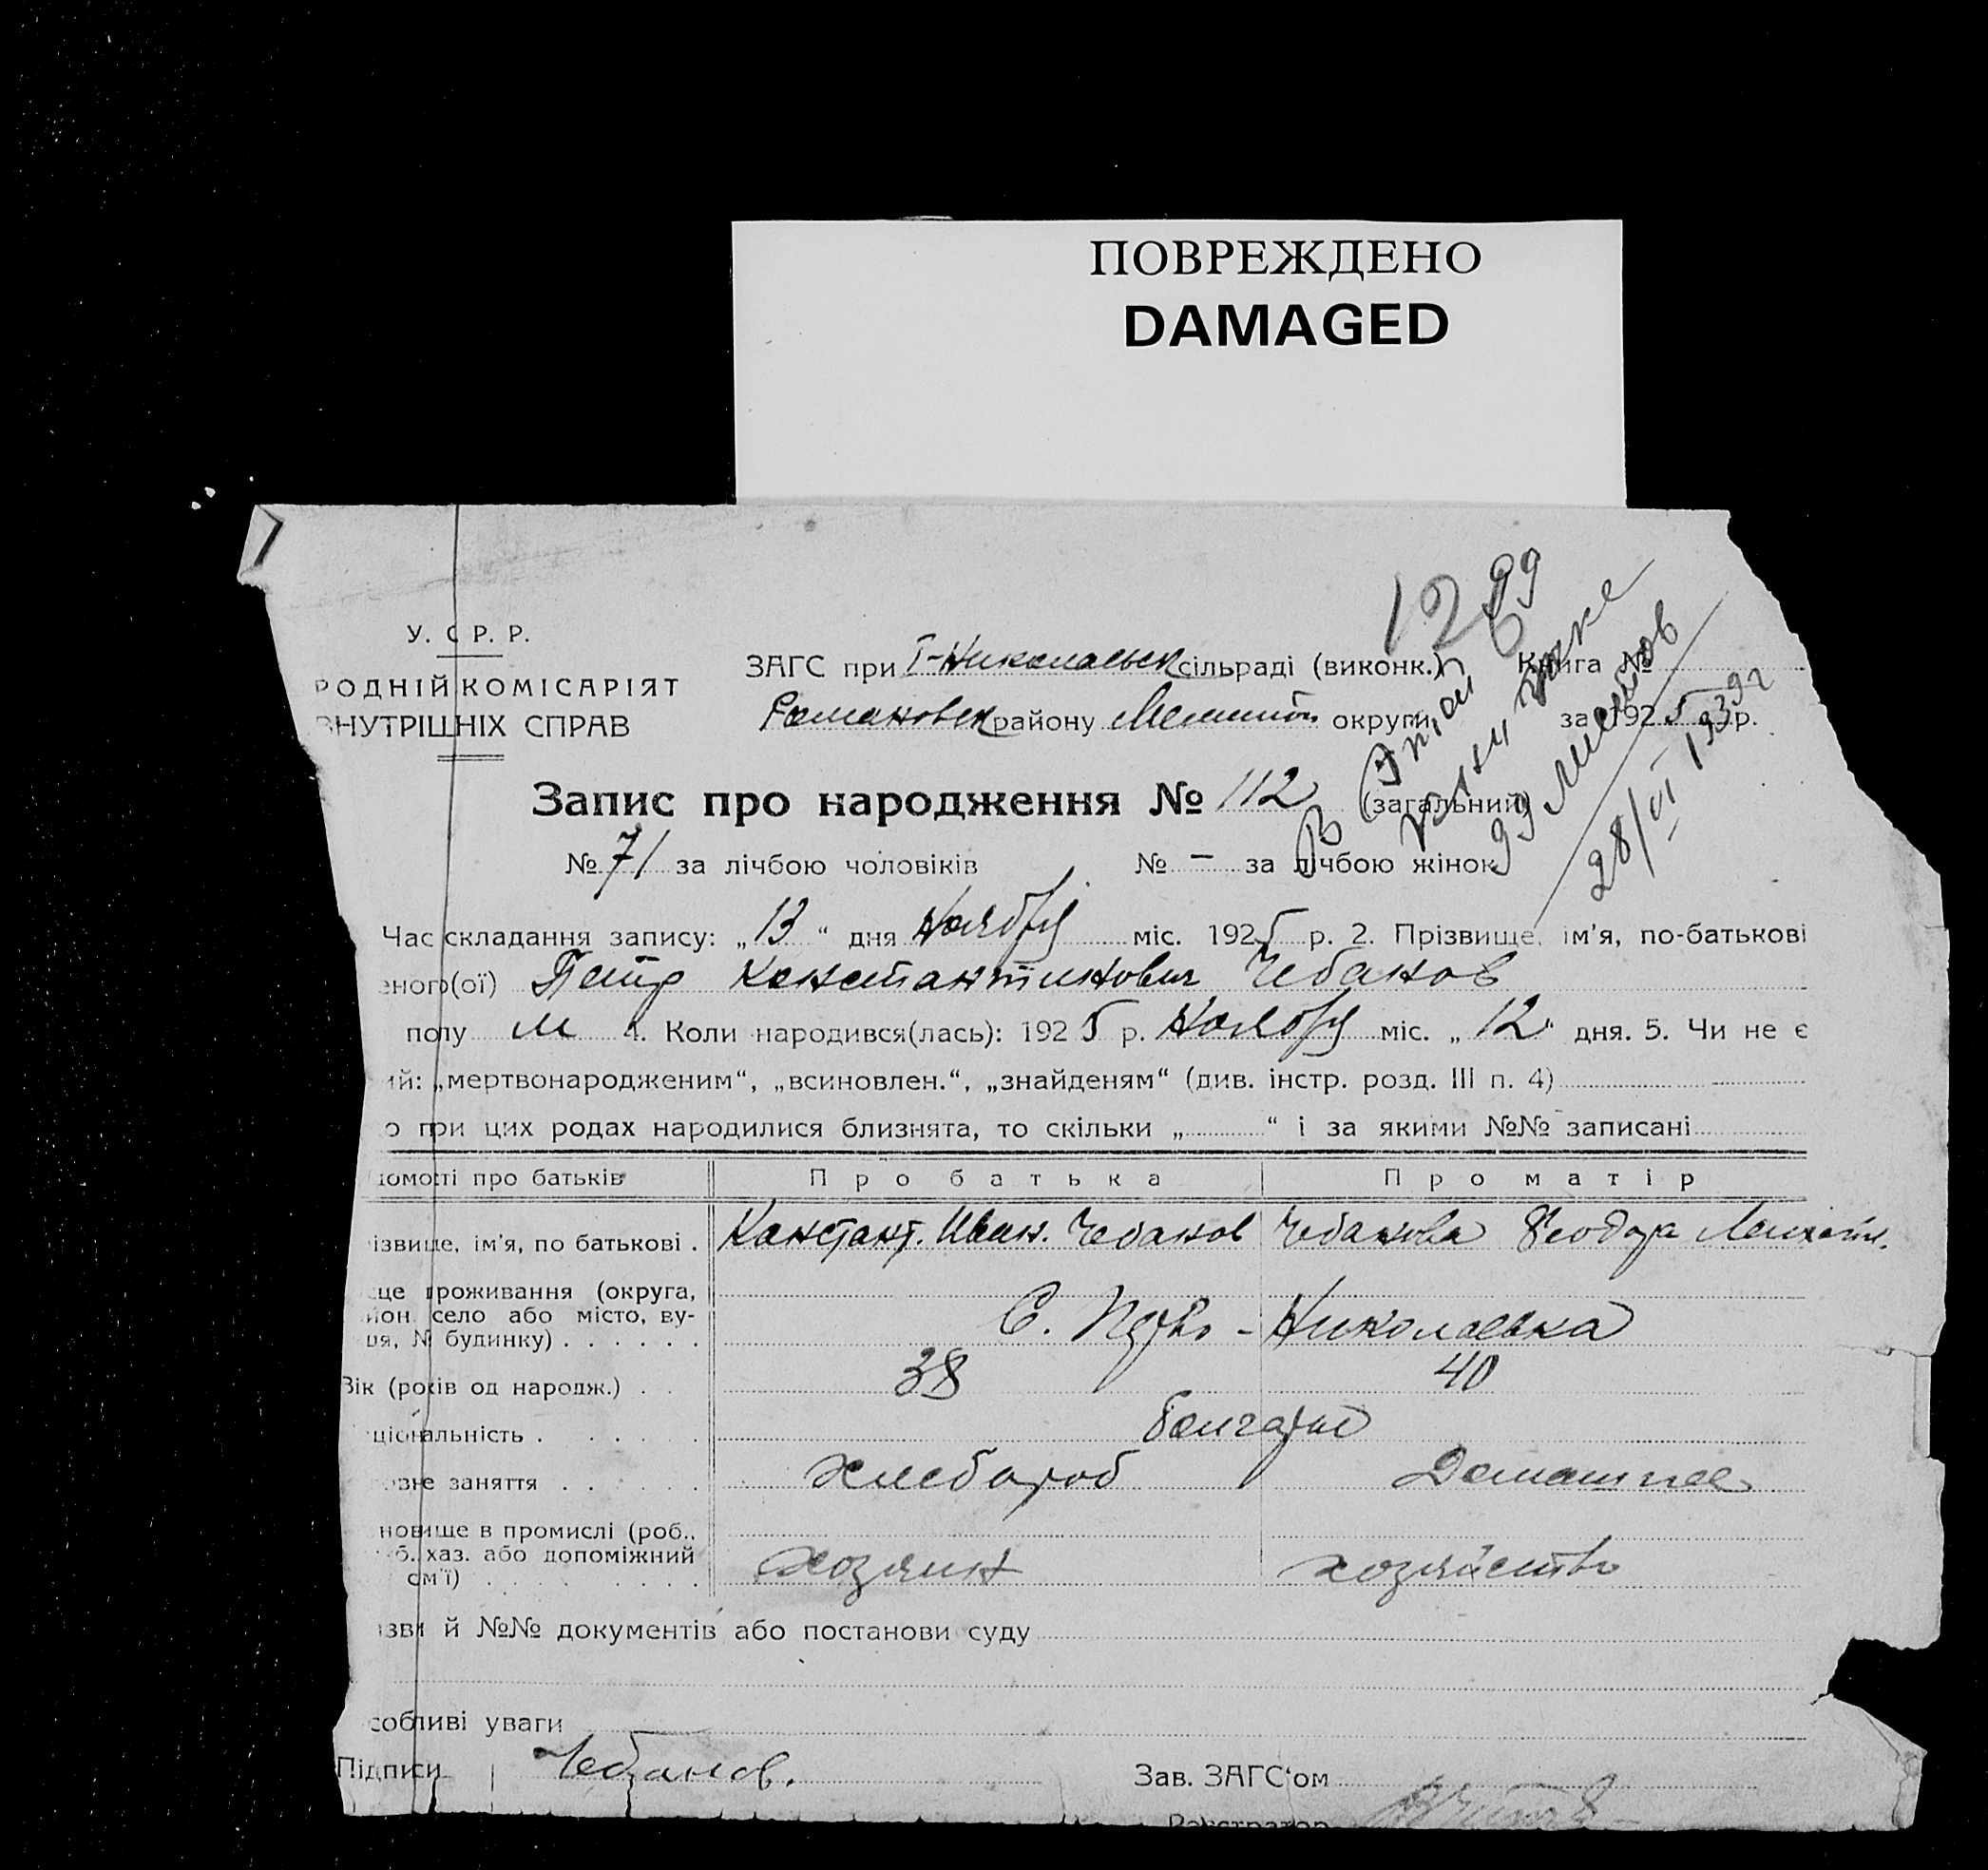 ПОВРЕЖДЕНО
DAMAGED
1299
У. С Р. Р.
РОДНІЙ КОМІСАРІЯТ
ВНУТРІШНІХ СПРАВ
ЗАГС при I-Николаевск сільраді (виконк.) Книга №
Романовск району Мелитоп округи за 1925 р.
28/VI 1939г
Запис про народження № 112 (загальний)
№ 71 за лічбою чоловіків № — за лічбою жінок
Час складання запису: „13“ дня Ноября міс. 1925 р. 2. Прізвище, ім’я, по-батькові
еного(ої) Петр Константинович Чебанов
полу м 4. Коли народився(лась): 1925 р. Ноября міс. „12“ дня. 5. Чи не є
ий: „мертвонародженим“, „всиновлен.“, „знайденям“ (див. інстр. розд. III п. 4)
о при цих родах народилися близнята, то скільки „ “ і за якими №№ записані
домості про батьків Про батька Про матір
ізвище, ім’я, по батькові . Констант. Иван. Чебанов Чебанова Феодора
це проживання (округа,
йон село або місто, ву-
ця, № будинку) . . . . . . С. -Николаевка
Вік (років од народж.) . . 38 40
ціональність . . . . . болгары
овне заняття . . . . . . хлебороб Домашнее
новище в промислі (роб.,
б. хаз. або допоміжний
см’ї) . . . . . . . . хозяин хозяйство
зви й №№ документів або постанови суду
собливі уваги
Підписи Чебанов. Зав. ЗАГС‘ом
Реєстратор